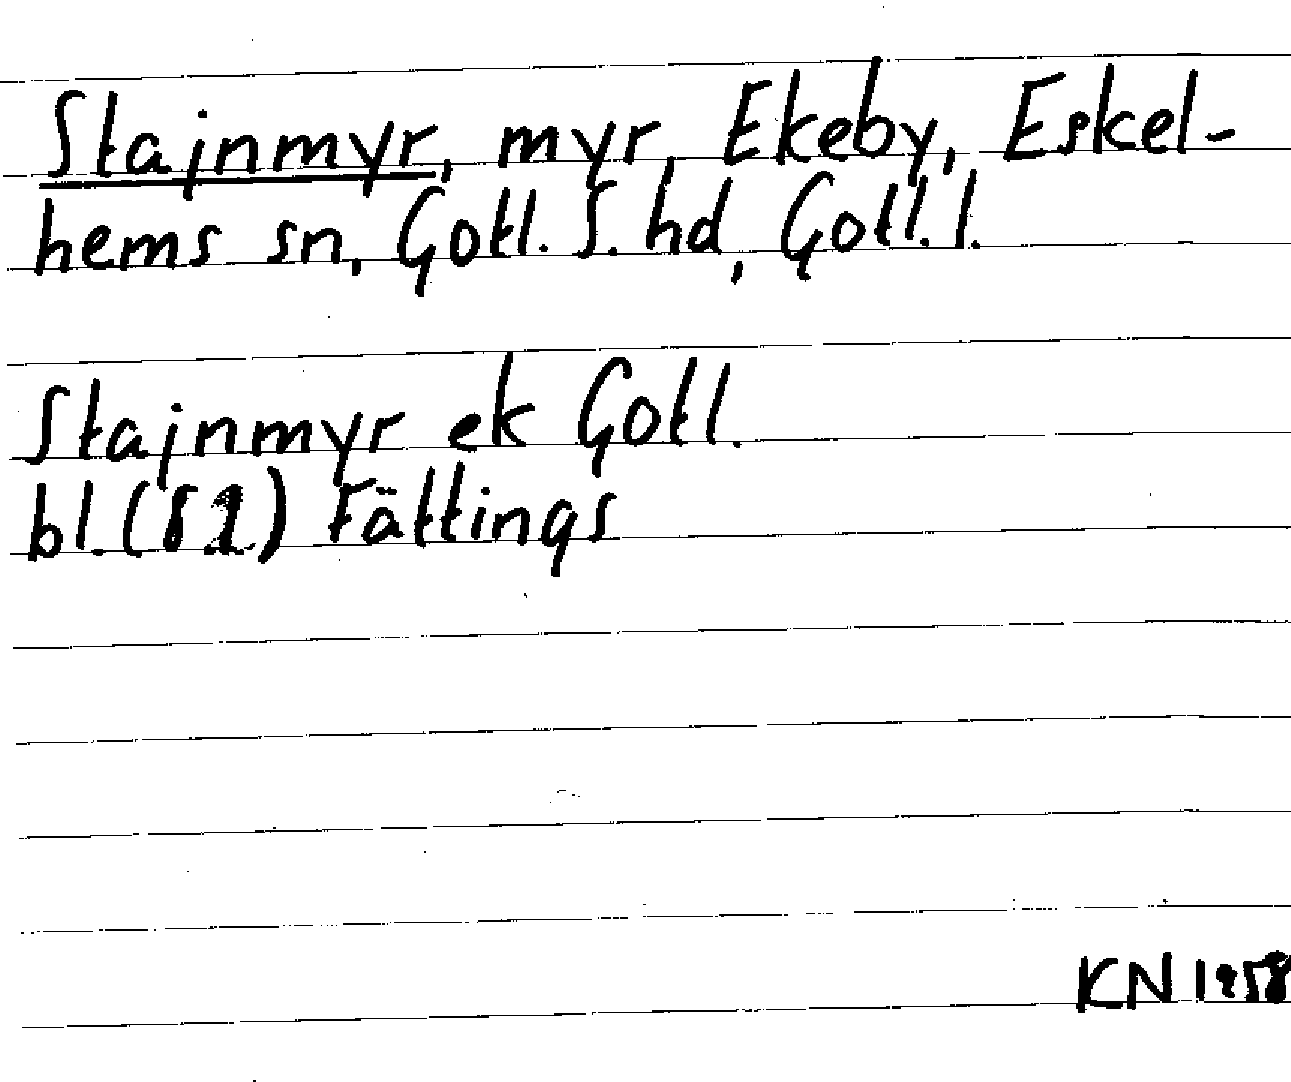 Stajnmyr, myr, Ekeby, Eskel-
hems sn, Gotl. S. hd, Gotl. l.
Stajnmyr ek Gotl.
bl. Fättings
KN 1958